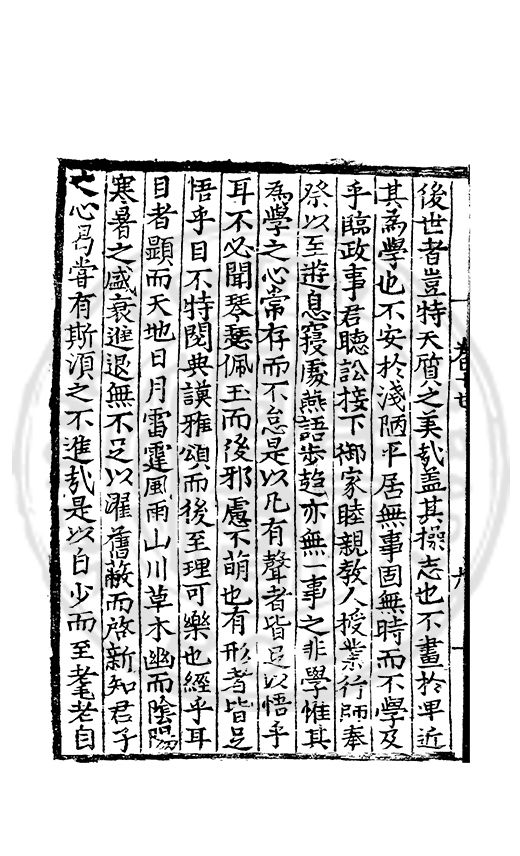 後世者豈特天質之美哉盖其操志也不畫於卑近
其為學也不安於淺陋平居無事固無時而不學及
乎臨政事君聽訟接下御家睦親教人授業行師奉
祭以至遊息寢處燕語步趨亦無一事之非學惟其
為學之心常存而不怠是以凡有聲者皆足以悟乎
耳不必聞琴瑟佩玉而後邪慮不萌也有形者皆足
悟乎目不特閱典謨雅頌而後至理可樂也經乎耳
目者顯而天地日月雷霆風雨山川草木幽而陰陽
寒暑之盛衰進退無不足以濯舊蔽而啓新知君子
之心曷嘗有斯須之不進哉是以自少而至耄老自